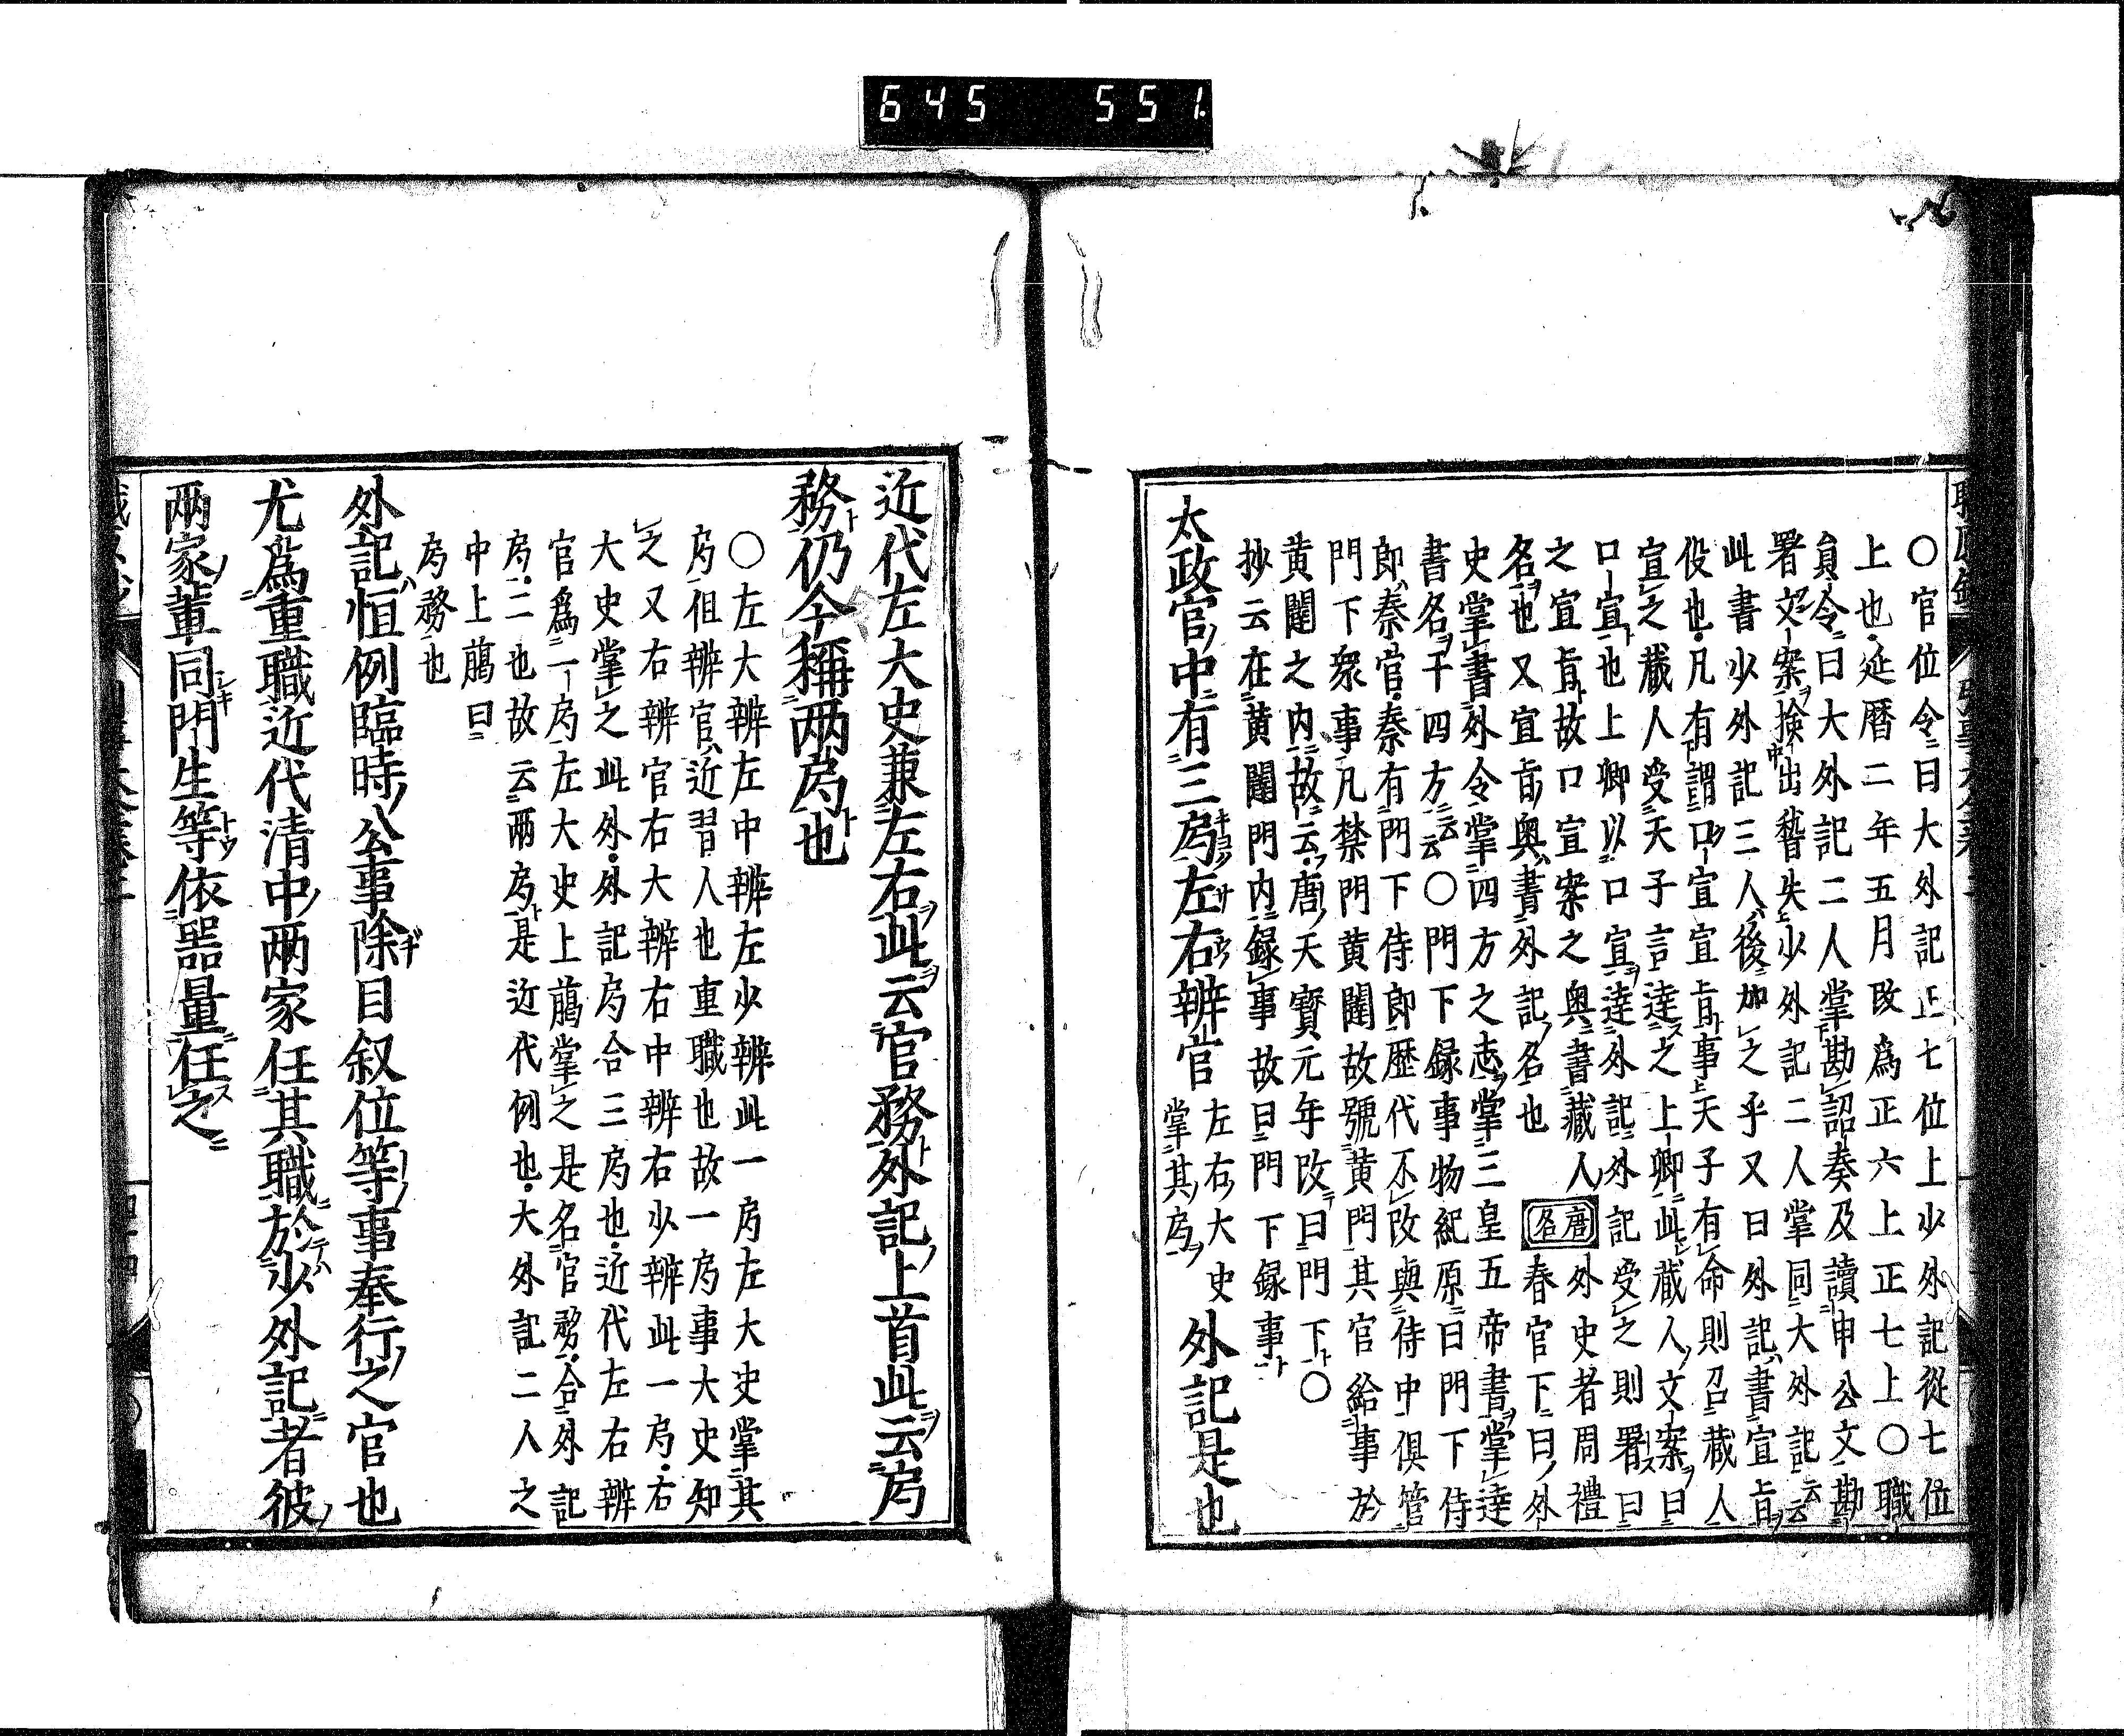 645 551
〇官位令ニ曰大外記正七位上少外記從七位
上也延暦二年五月改爲正六上正七上〇職
員令ニ曰大外記二人掌勘詔奏及讀申公文勘
署文案撿出稽失少外記二人掌同大外記云云
此書少外記三人後加之乎又曰外記書宣旨
役也凡有謂口宣宣旨事天子有命則召蔵人
宣之蔵人受天子言達之上卿此蔵人文案曰
口宣也上卿以口宣達外記外記受之則署曰
之宣旨故口宣案之奥書藏人
名也又宣旨奥書外記名也 唐名 外史者周禮
春官下曰外
史掌書外令掌四方之志掌三皇五帝書掌達
書名于四方云云〇門下録事物紀原曰門下侍
郎秦官秦有門下侍郎歴代不改與侍中俱管
門下衆事凡禁門黄闥故號黄門其官給事於
黄闥之内故云唐天寳元年改曰門下〇
抄云在黄闥門内録事故曰門下録事
太政官中有三局左右辨官 左右大史掌其局 外記是也
近代左大史兼左右此云官務外記上首此云局
務仍今稱两局也
〇左大辨左中辨左少辨此一局左大史掌其
局但辨官近習人也重職也故一局事大史知
之又右辨官右大辨右中辨右少辨此一局右
大史掌之此外外記局合三局也近代左右辨
官爲一局左大史上﨟掌之是名官務合外記
局二也故云兩局是近代例也大外記二人之
中上﨟曰
局務也
外記恒例臨時公事除目叙位等事奉行之官也
尤爲重職近代清中两家任其職於少外記者彼
兩家輩同門生等依器量任之